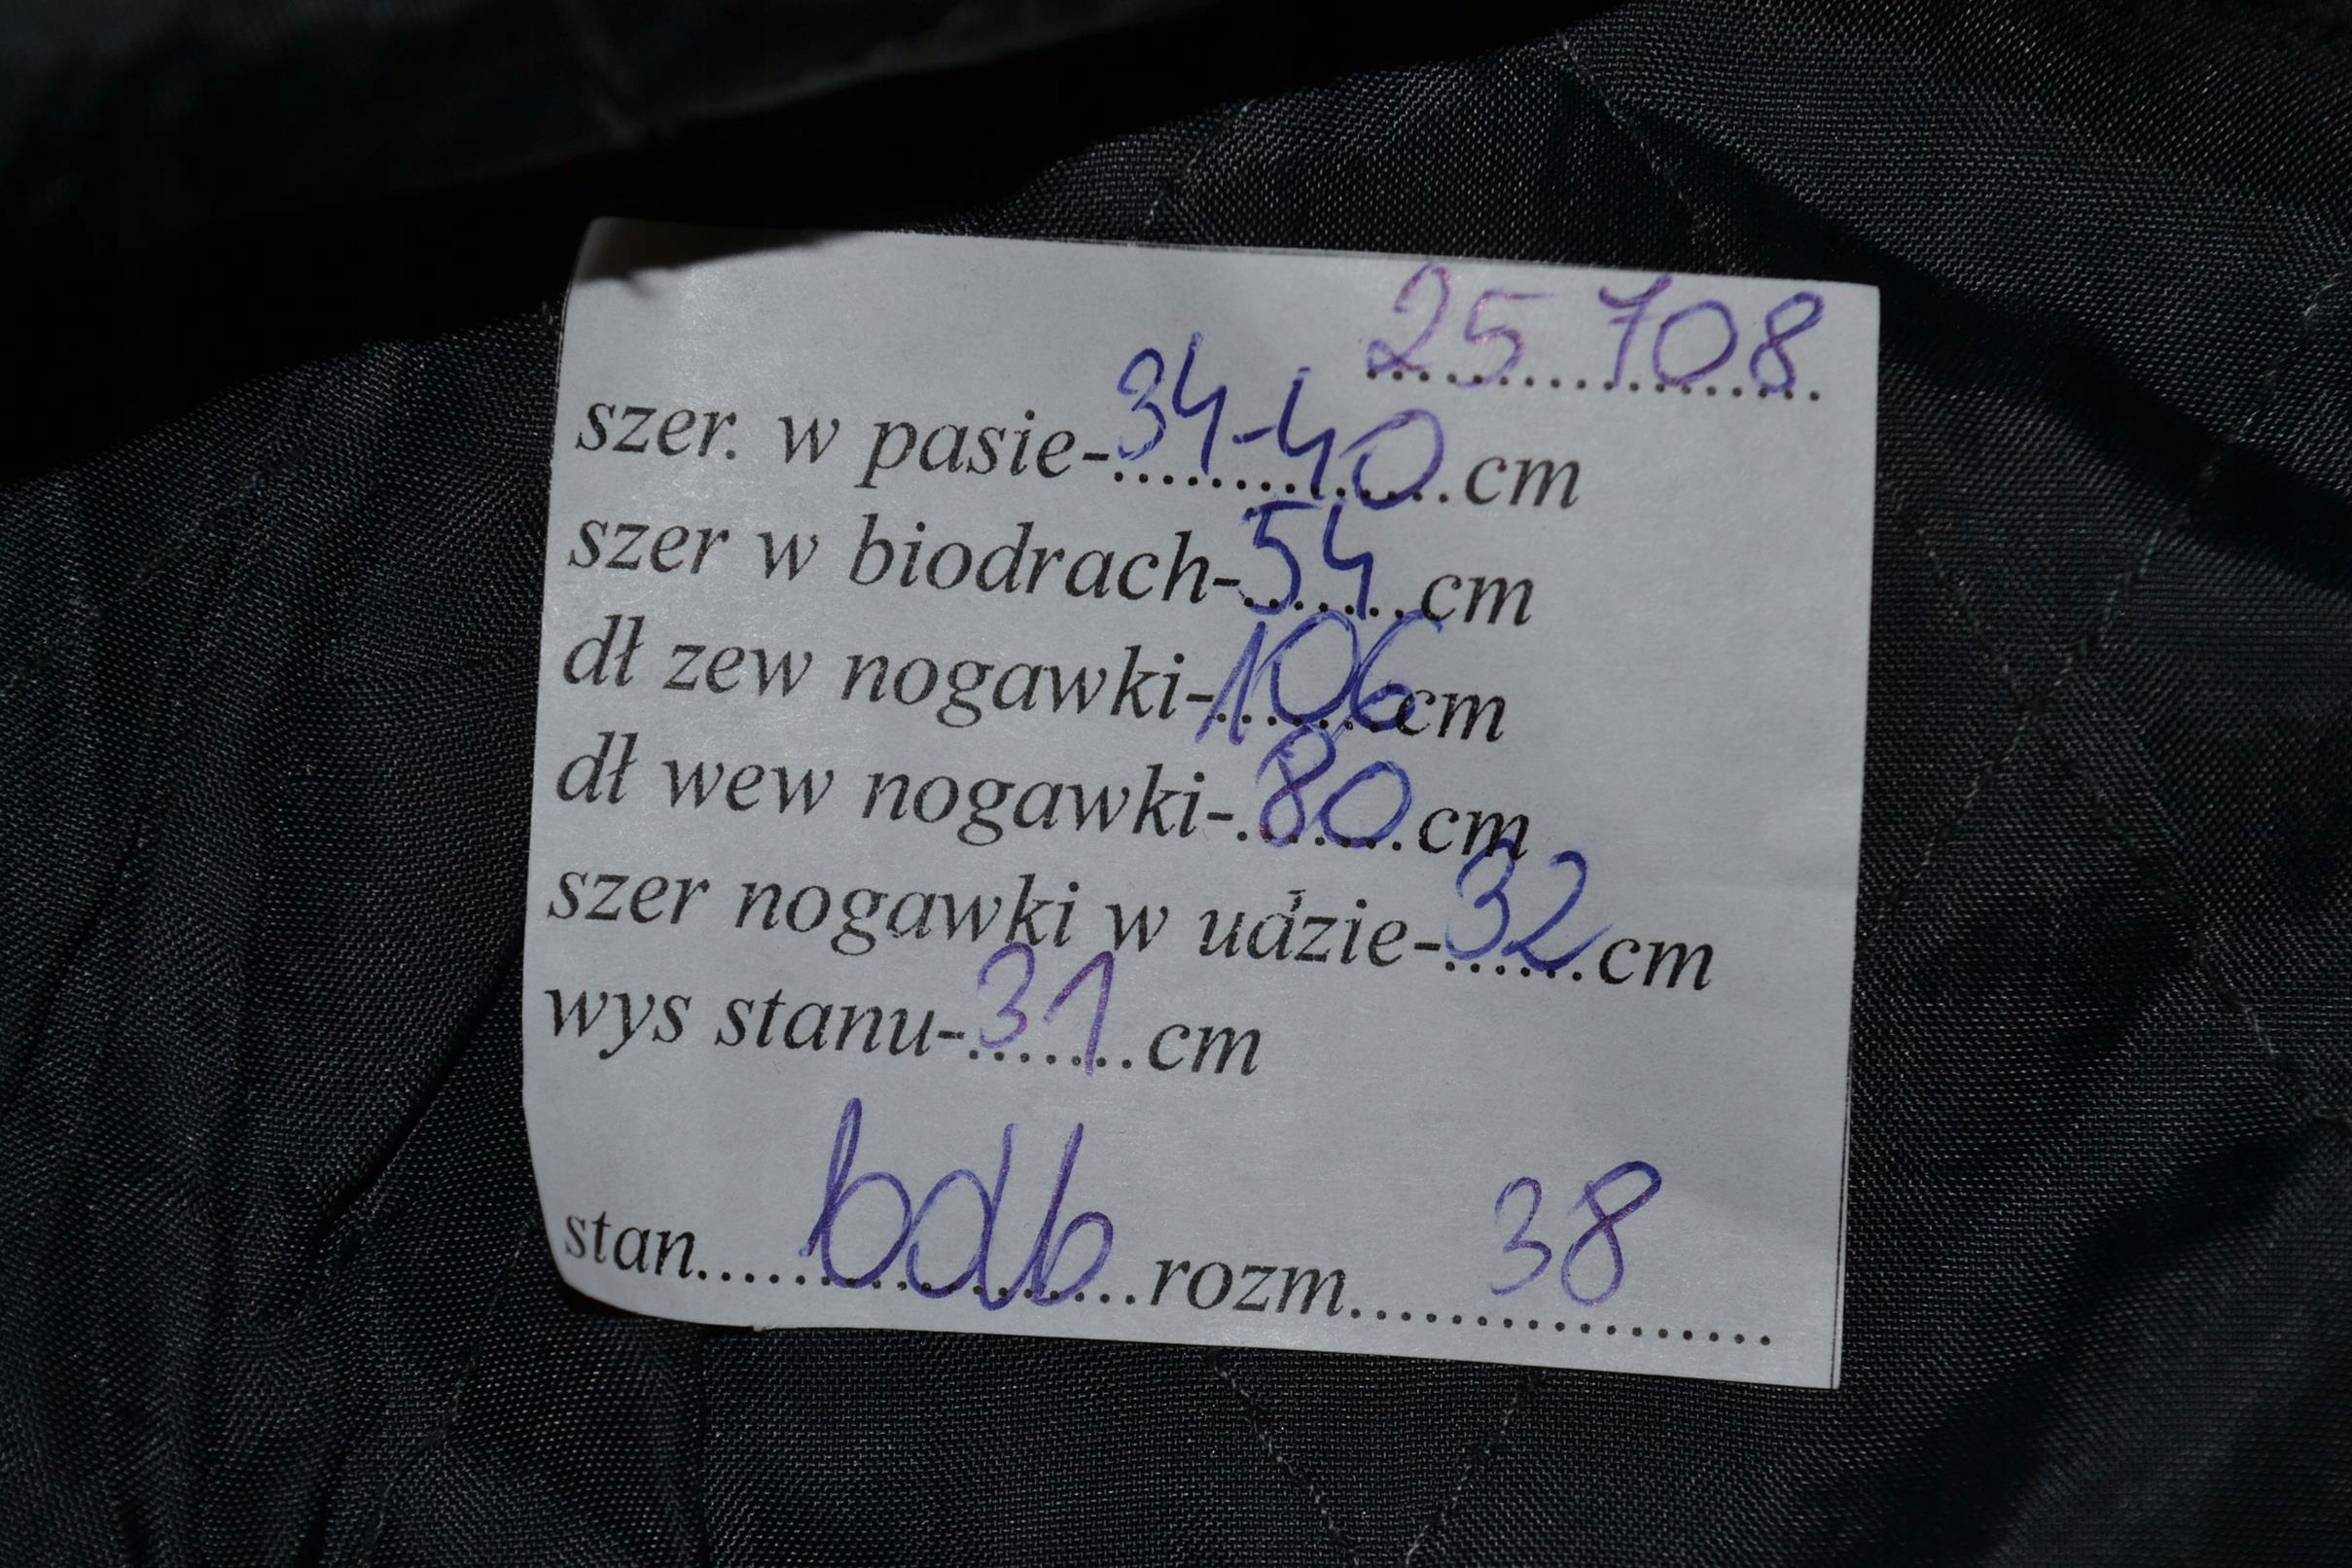 25 708
szer. w pasie-34-40 cm
szer w biodrach-54 cm
dł zew nogawki-106 cm
dł wew nogawki-80 cm
szer nogawki w udzie-32 cm
wys stanu-31 cm
stan bdb rozm 38